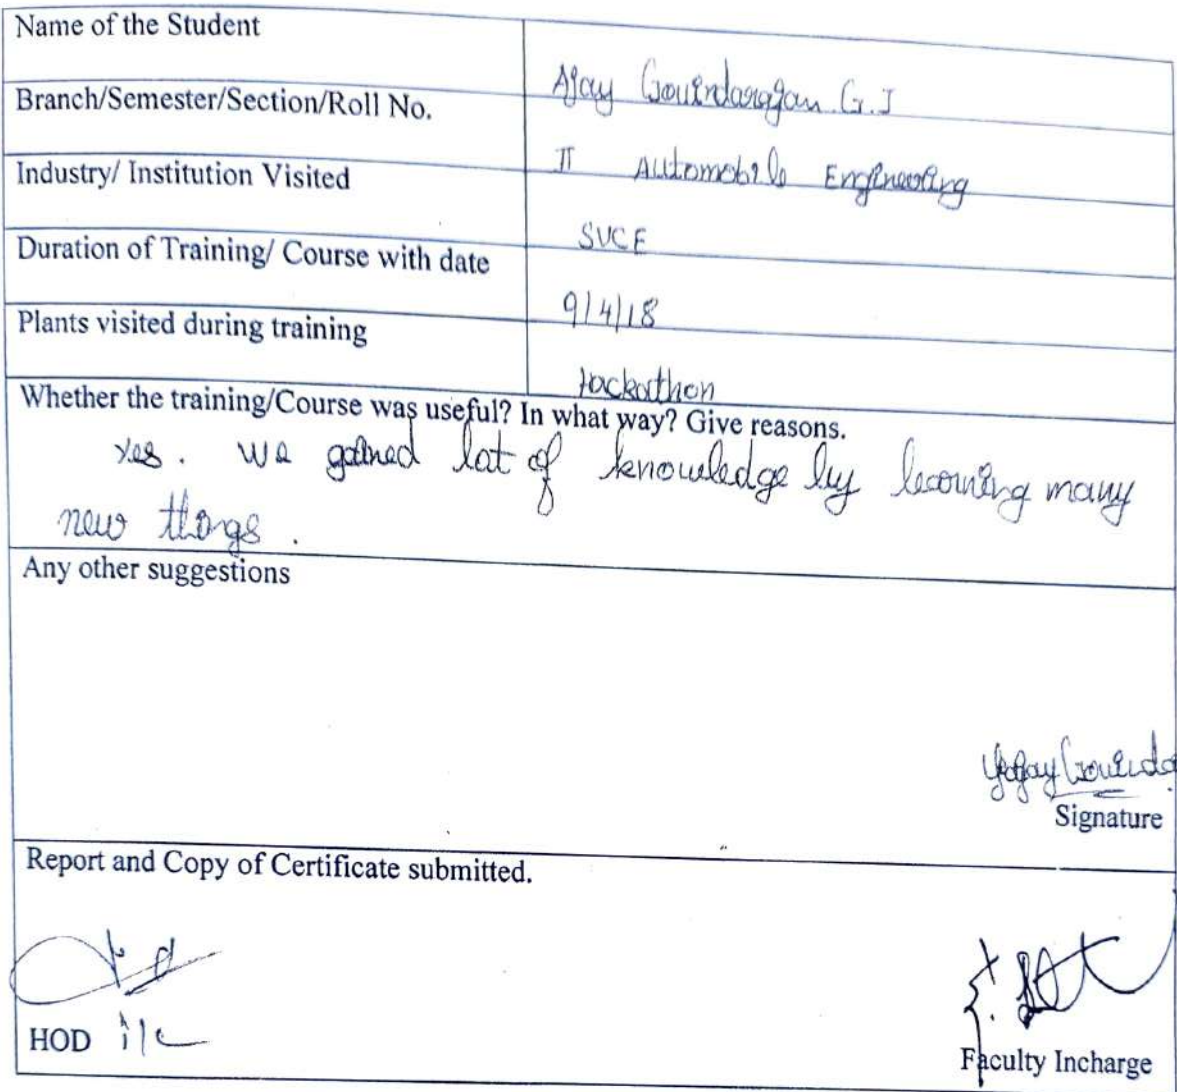 Name of the Student
Ajay Govindarajan G.J
Branch/Semester/Section/Roll No.
II Automobile Engineering
Industry/ Institution Visited
SVCE
Duration of Training/ Course with date
9/4/18
Plants visited during training
Hackathon
Whether the training/Course was useful? In what way? Give reasons.
Yes. We gained lot of knowledge by learning many
new things.
Any other suggestions
Signature
Report and Copy of Certificate submitted.
HOD i/c
Faculty Incharge